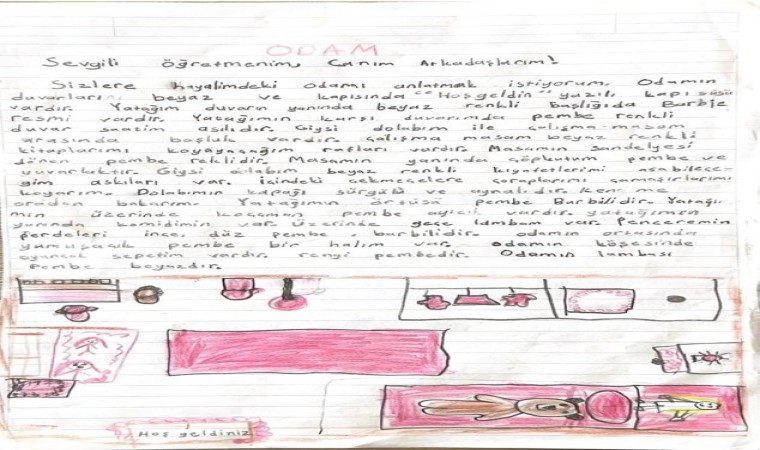 ODAM
Sevgili öğretmenim, Canım Arkadaşlarım!
Sizlere hayalimdeki odamı anlatmak istiyorum. Odamın
duvarları beyaz ve kapısında "Hoşgeldin" yazılı kapı süsü
vardır. Yatağım duvarın yanında beyaz renkli başlığıda Barbie
resmi vardır. Yatağımın karşı duvarımda pembe renkli
duvar saatim asılıdır. Giysi dolabım ile çalışma masam
arasında boşluk vardır. Çalışma masam beyaz renkli
kitaplarımı koyacağım rafları vardır. Masamın sandelyesi
dönen pembe reklidir. Masamın yanında çöpkutum pembe ve
yuvarlaktır. Giysi dolabım beyaz renkli kıyafetlerimi asabilece-
ğim askıları var. İçindeki çekmecelere çoraplarımı çamaşırlarımı
koyarım. Dolabımın kapağı sürgülü ve aynalıdır. Kendime
oradan bakarım. Yatağımın örtüsü pembe Barbilidir. Yatağı-
mın üzerinde kocaman pembe ayıcık vardır. Yatağımın
yanında komidinim var. Üzerinde gece lambam var. Penceremin
perdeleri ince, düz pembe, barbilidir. odamın ortasında
yumuşacık pembe bir halım var. odamın köşesinde
oyuncak sepetim vardır. rengi pembedir. Odamın lambası
pembe beyazdır.
Hoş geldiniz